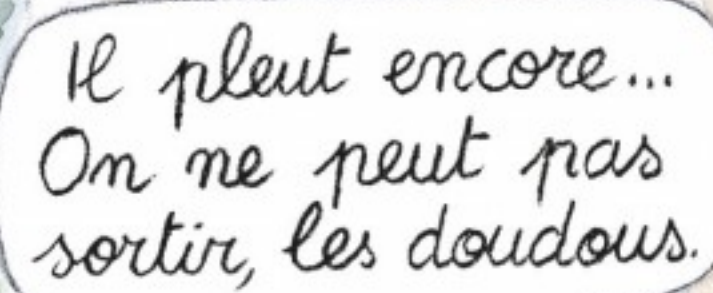 Il pleut encore...
On ne peut pas
sortir, les doudous.